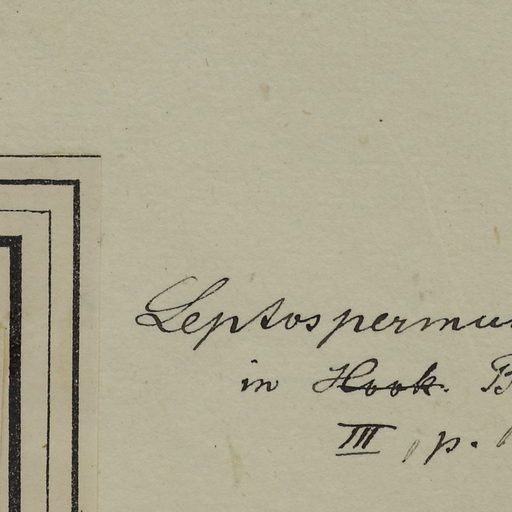 Leptospermu
in Hook. B
III, p.